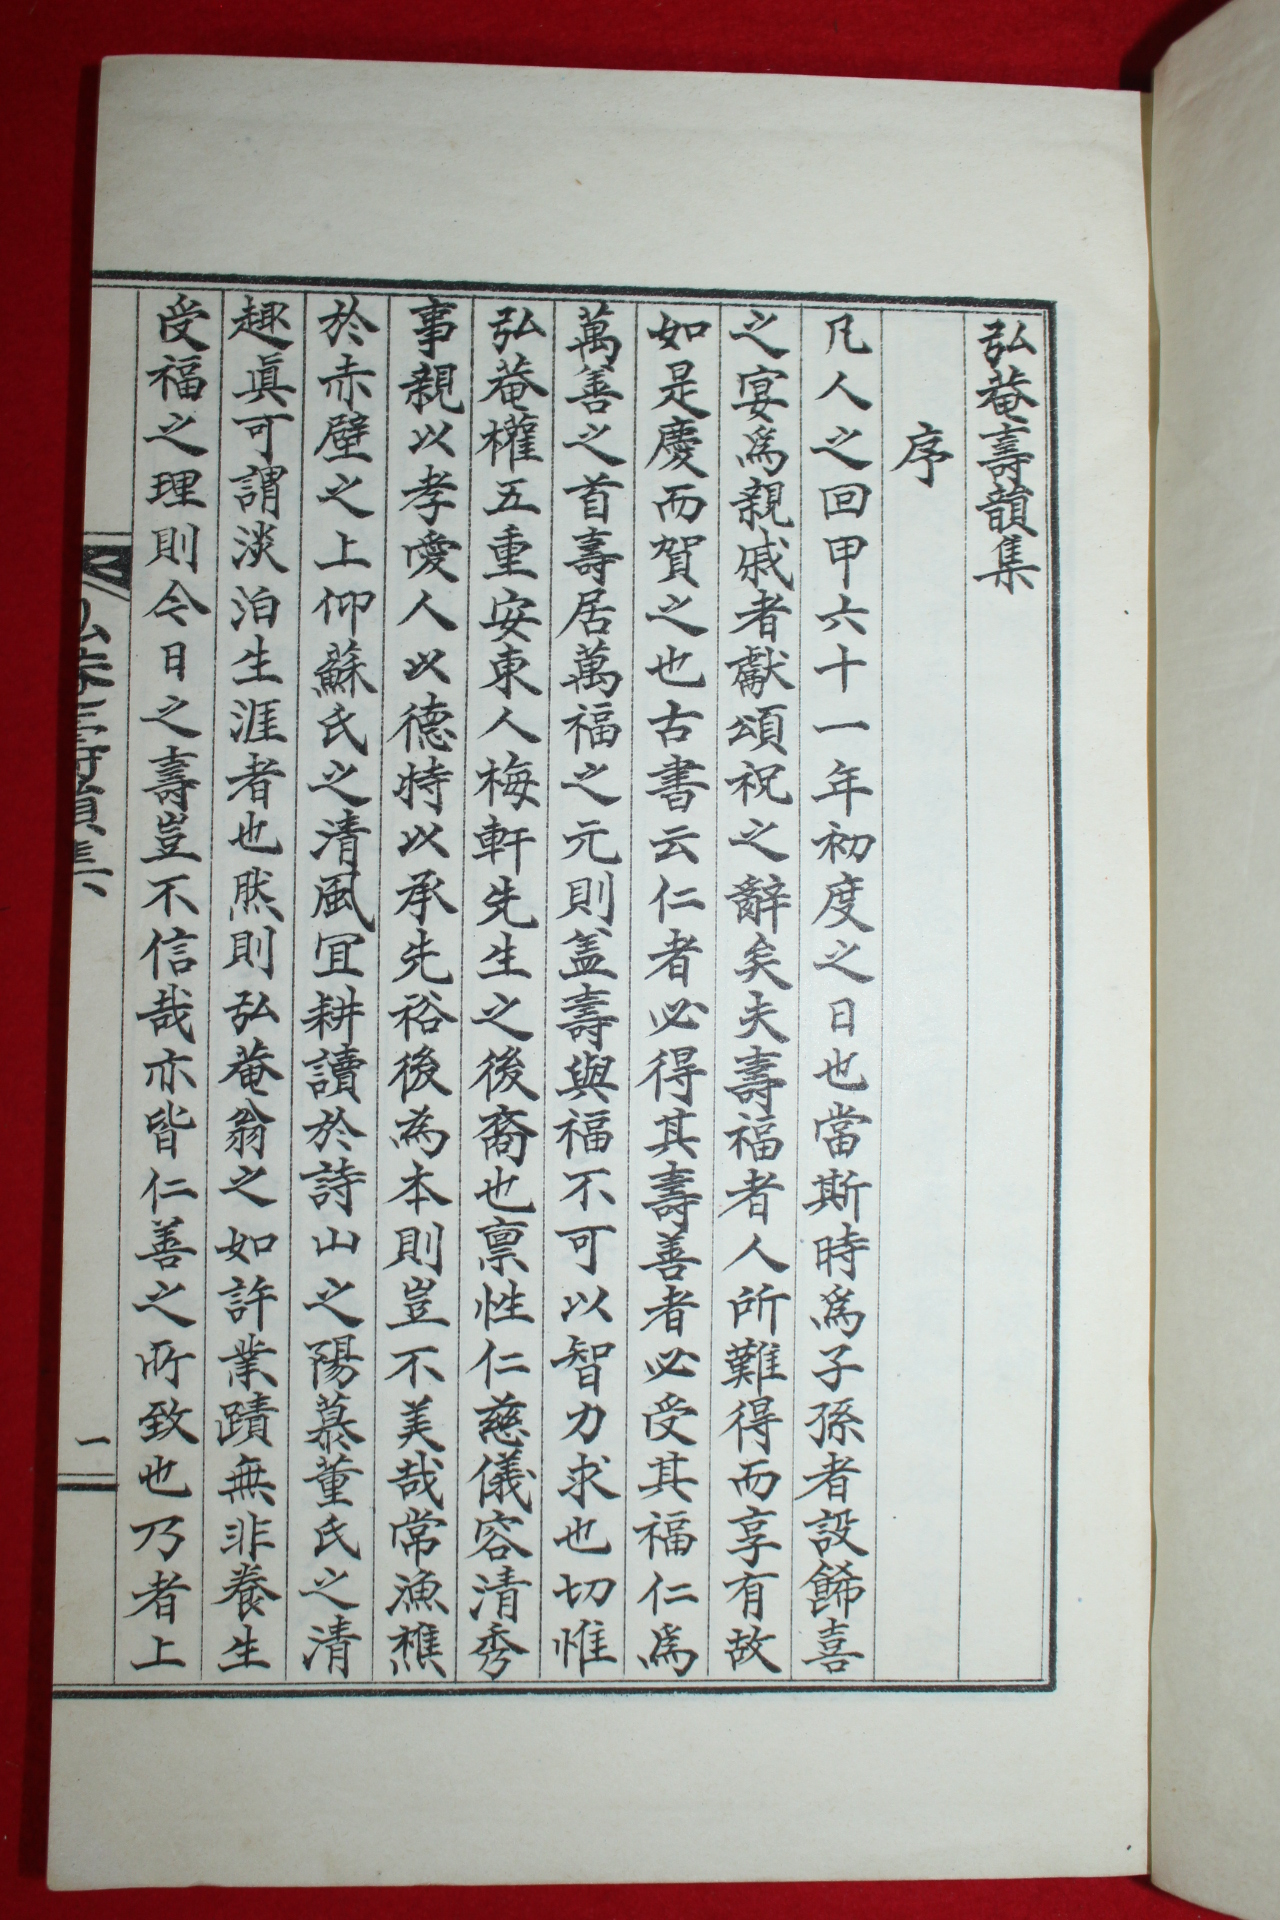 弘菴壽韻集
序
凡人之回甲六十一年初度之日也當斯時爲子孫者設餙喜
之宴爲親戚者獻頌祝之辭矣夫壽福者人所難得而享有故
如是慶而賀之也古書云仁者必得其壽善者必受其福仁爲
萬善之首壽居萬福之元則盖壽與福不可以智力求也切惟
弘菴權五重安東人梅軒先生之後裔也禀性仁慈儀容清秀
事親以孝愛人以德特以承先裕後爲本則豈不美哉常漁樵
於赤壁之上仰蘇氏之清風冝耕讀於詩山之陽慕董氏之清
趣眞可謂淡泊生涯者也然則弘菴翁之如許業蹟無非養生
受福之理則今日之壽豈不信哉亦皆仁善之所致也乃者上
弘菴壽韻集
一